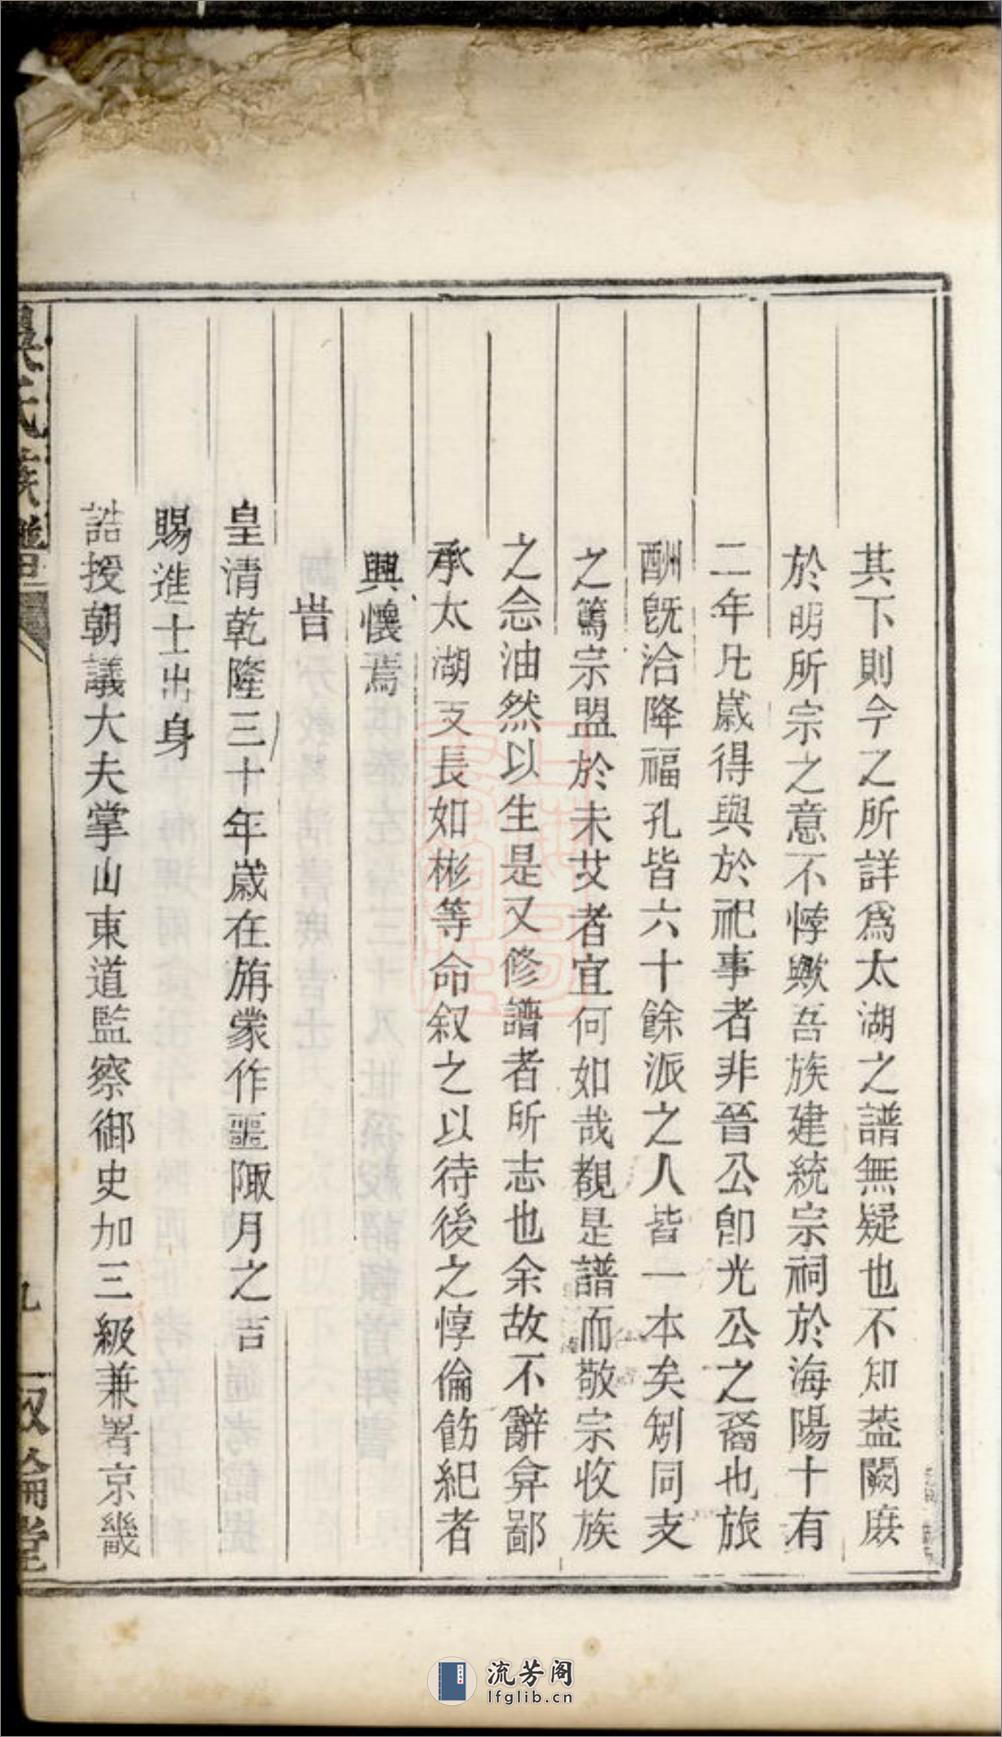 其下則今之所詳爲太湖之譜無疑也不知葢闕庶
於明所宗之意不悖歟吾族建統宗祠於海陽十有
二年凡歲得與於祀事者非晉公卽光公之裔也旅
酬旣洽降福孔皆六十餘派之人皆一本矣矧同支
之篤宗盟於未艾者宜何如哉覩是譜而敬宗收族
之念油然以生是又修譜者所志也余故不辭弇鄙
承太湖支長如彬等命叙之以待後之惇倫飭紀者
興懷焉
旹
皇清乾隆三十年歲在旃蒙作噩陬月之吉
賜進士出身
誥授朝議大夫掌山東道監察御史加三級兼署京畿
吳氏族譜
九
叙倫堂
流芳阁
lfglib.cn